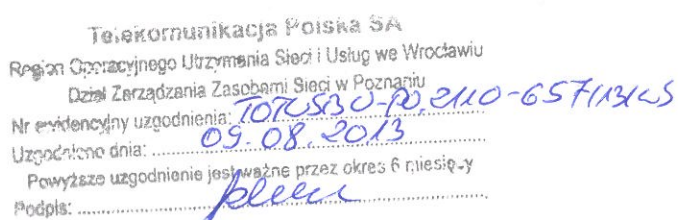 Telekomunikacja Polska SA
Region Operacyjnego Utrzymania Sieci i Usług we Wrocławiu
Dział Zarządzania Zasobami Sieci w Poznaniu
Nr ewidencyjny uzgodnienia:
Uzgodniono dnia: 09.08.2013
Powyższe uzgodnienie jest ważne przez okres 6 miesięcy
Podpis: